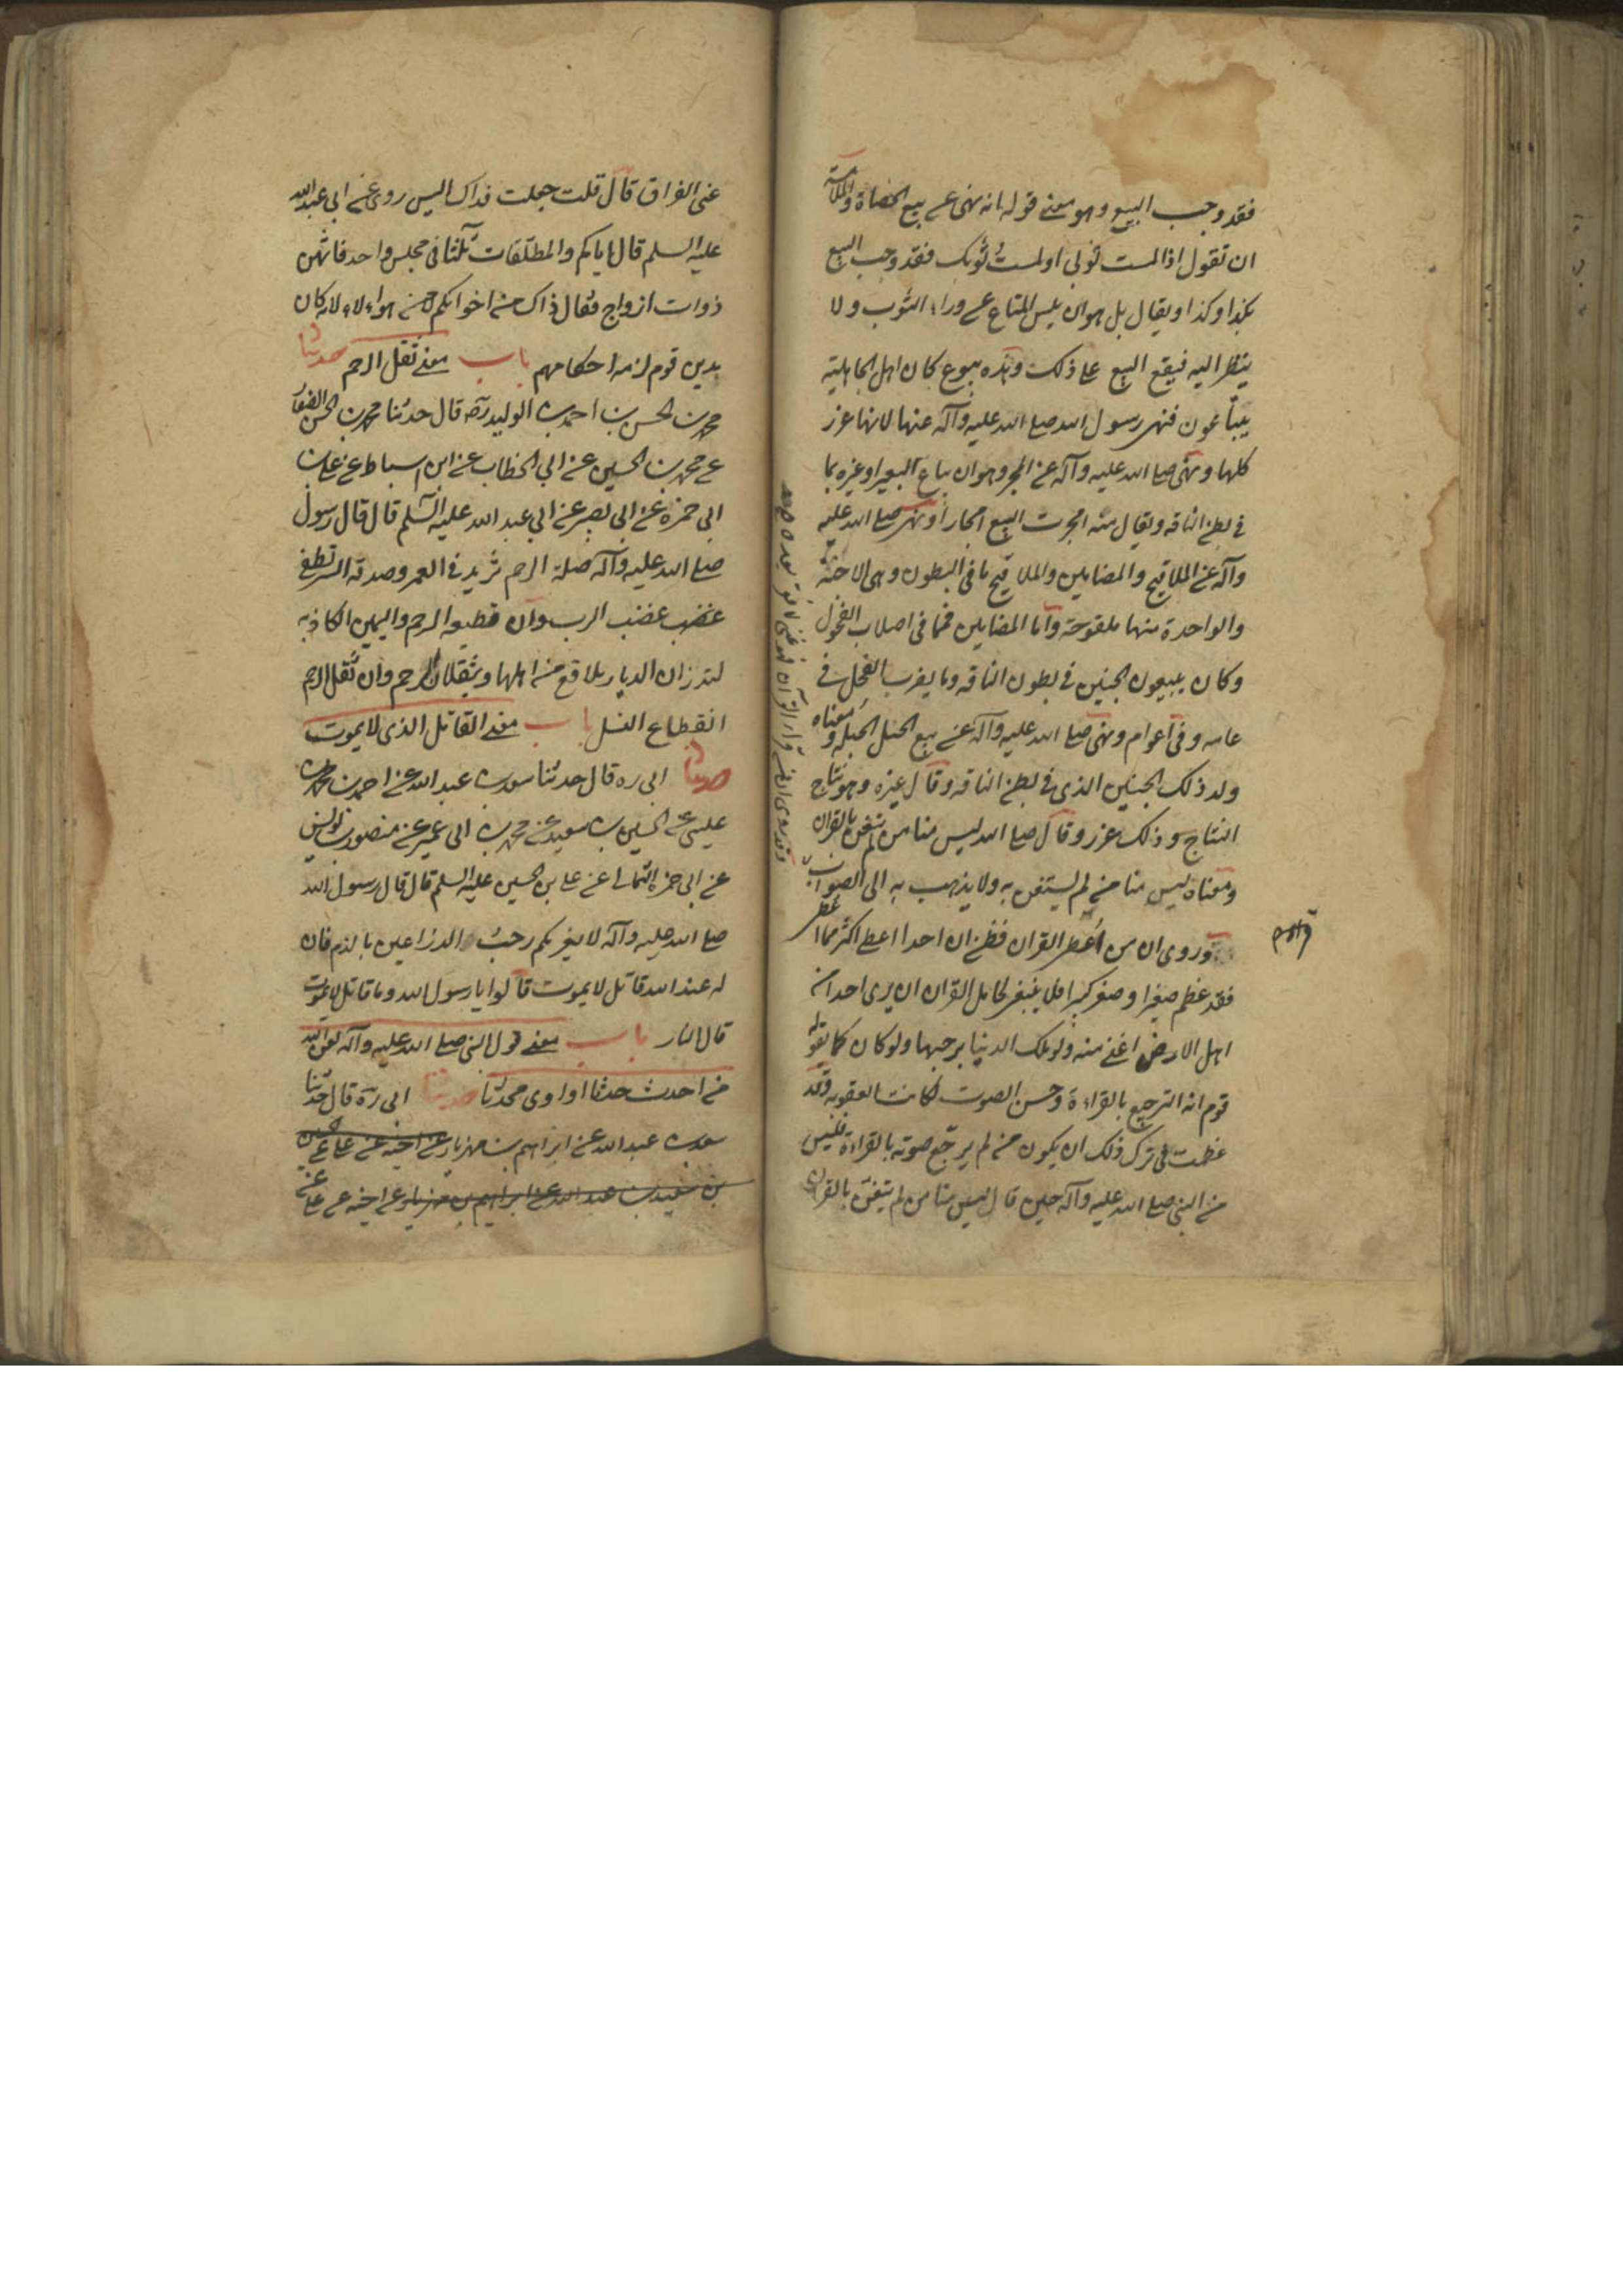 فقد وجب البيع وهو معنى قوله انه نهى عن بيع الحصاة والملامسة
ان تقول اذا لمست ثوبي او لمست ثوبك فقد وجب البيع
بكذا وكذا ويقال بل هو ان يلمس المتاع من وراء الثوب ولا
ينظر اليه فيقع البيع على ذلك وهذه بيوع كان اهل الجاهلية
يتبايعون فنهى رسول الله صلى الله عليه وآله عنها لانها غرر
كلها ونهى صلى الله عليه وآله عن المجر وهو ان يباع البعير او غيره بما
في بطن الناقه ويقال منه امجرت البيع امجارا ونهى صلى الله عليه
وآله عن الملاقيح والمضامين والملاقيح ما في البطون وهي الاجنة
والواحدة منها ملقوحة واما المضامين فما في اصلاب الفحول
وكان يبيعون الجنين في بطون الناقه وما يضرب الفحل في
عامه وفي اعوام ونهى صلى الله عليه وآله عن بيع الحبل الحبله ومعناه
ولد ذلك الجنين الذي في بطن الناقه وقال غيره وهو نتاج
النتاج وذلك غرر وقال صلى الله ليس منا من لم يتغن بالقران
ومعناه ليس منا من لم يستغن به ولا يذهب به الى الصوت
وروى ان من اعطى القران فظن ان احدا اعطى اكثر مما اعطى
فقد عظم صغيرا وصغر كبيرا فلا ينبغي لحامل القران ان يرى احدا من
اهل الارض اغنى منه ولو ملك الدنيا برحبها ولو كان كما يقوله
قوم انه الترجيع بالقراءة وحسن الصوت لكانت العقوبه قد
عظمت في ترك ذلك ان يكون من لم يرجع صوته بالقراءة فليس
من النبي صلى الله عليه وآله حين قال ليس منا من لم يتغن بالقران
عنى الفراق قال قلت جعلت فداك اليس روى عن ابي عبدالله
عليه السلم قال اياكم والمطلقات ثلثا في مجلس واحد فانهن
ذوات ازواج فقال ذاك من اخوانكم لا من هؤلاء لانه كان
بدين قوم لزمه احكامهم باب معنى ثقل الرحم حدثنا
محمد بن الحسن بن احمد بن الوليد ره قال حدثنا محمد بن الحسن الصفار
عن محمد بن الحسين عن ابي الخطاب عن ابن اسباط عن علي بن
ابي حمزة عن ابي بصير عن ابي عبد الله عليه السلم قال قال رسول
صلى الله عليه وآله صلة الرحم تزيد في العمر وصدقه السر تطفى
غضب غضب الرب وان قطيعه الرحم واليمين الكاذبه
لتذران الديار بلاقع من اهلها ويثقلان الرحم وان ثقل الرحم
انقطاع النسل باب معنى القاتل الذى لا يموت
حدثنا ابي ره قال حدثنا سعد بن عبد الله عن احمد بن محمد بن
عيسى عن الحسين بن سعيد عن محمد بن ابي عمير عن منصور بن يونس
عن ابي حمزه الثمالى عن على بن الحسين عليه السلم قال قال رسول الله
صلى الله عليه وآله لا يغركم رحب الذراعين بالدم فان
له عند الله قاتل لا يموت قالوا يا رسول الله وما قاتل لا يموت
قال النار باب معنى قول النبي صلى الله عليه وآله لعن الله
من احدث حدثا او اوى محدثا حدثنا ابي ره قال حدثنا
سعد بن عبد الله عن ابراهيم بن مهزيار عن اخيه عن على عن
بن سعيد بن عبد الله عن ابراهيم بن مهزيار عن اخيه عن على عن